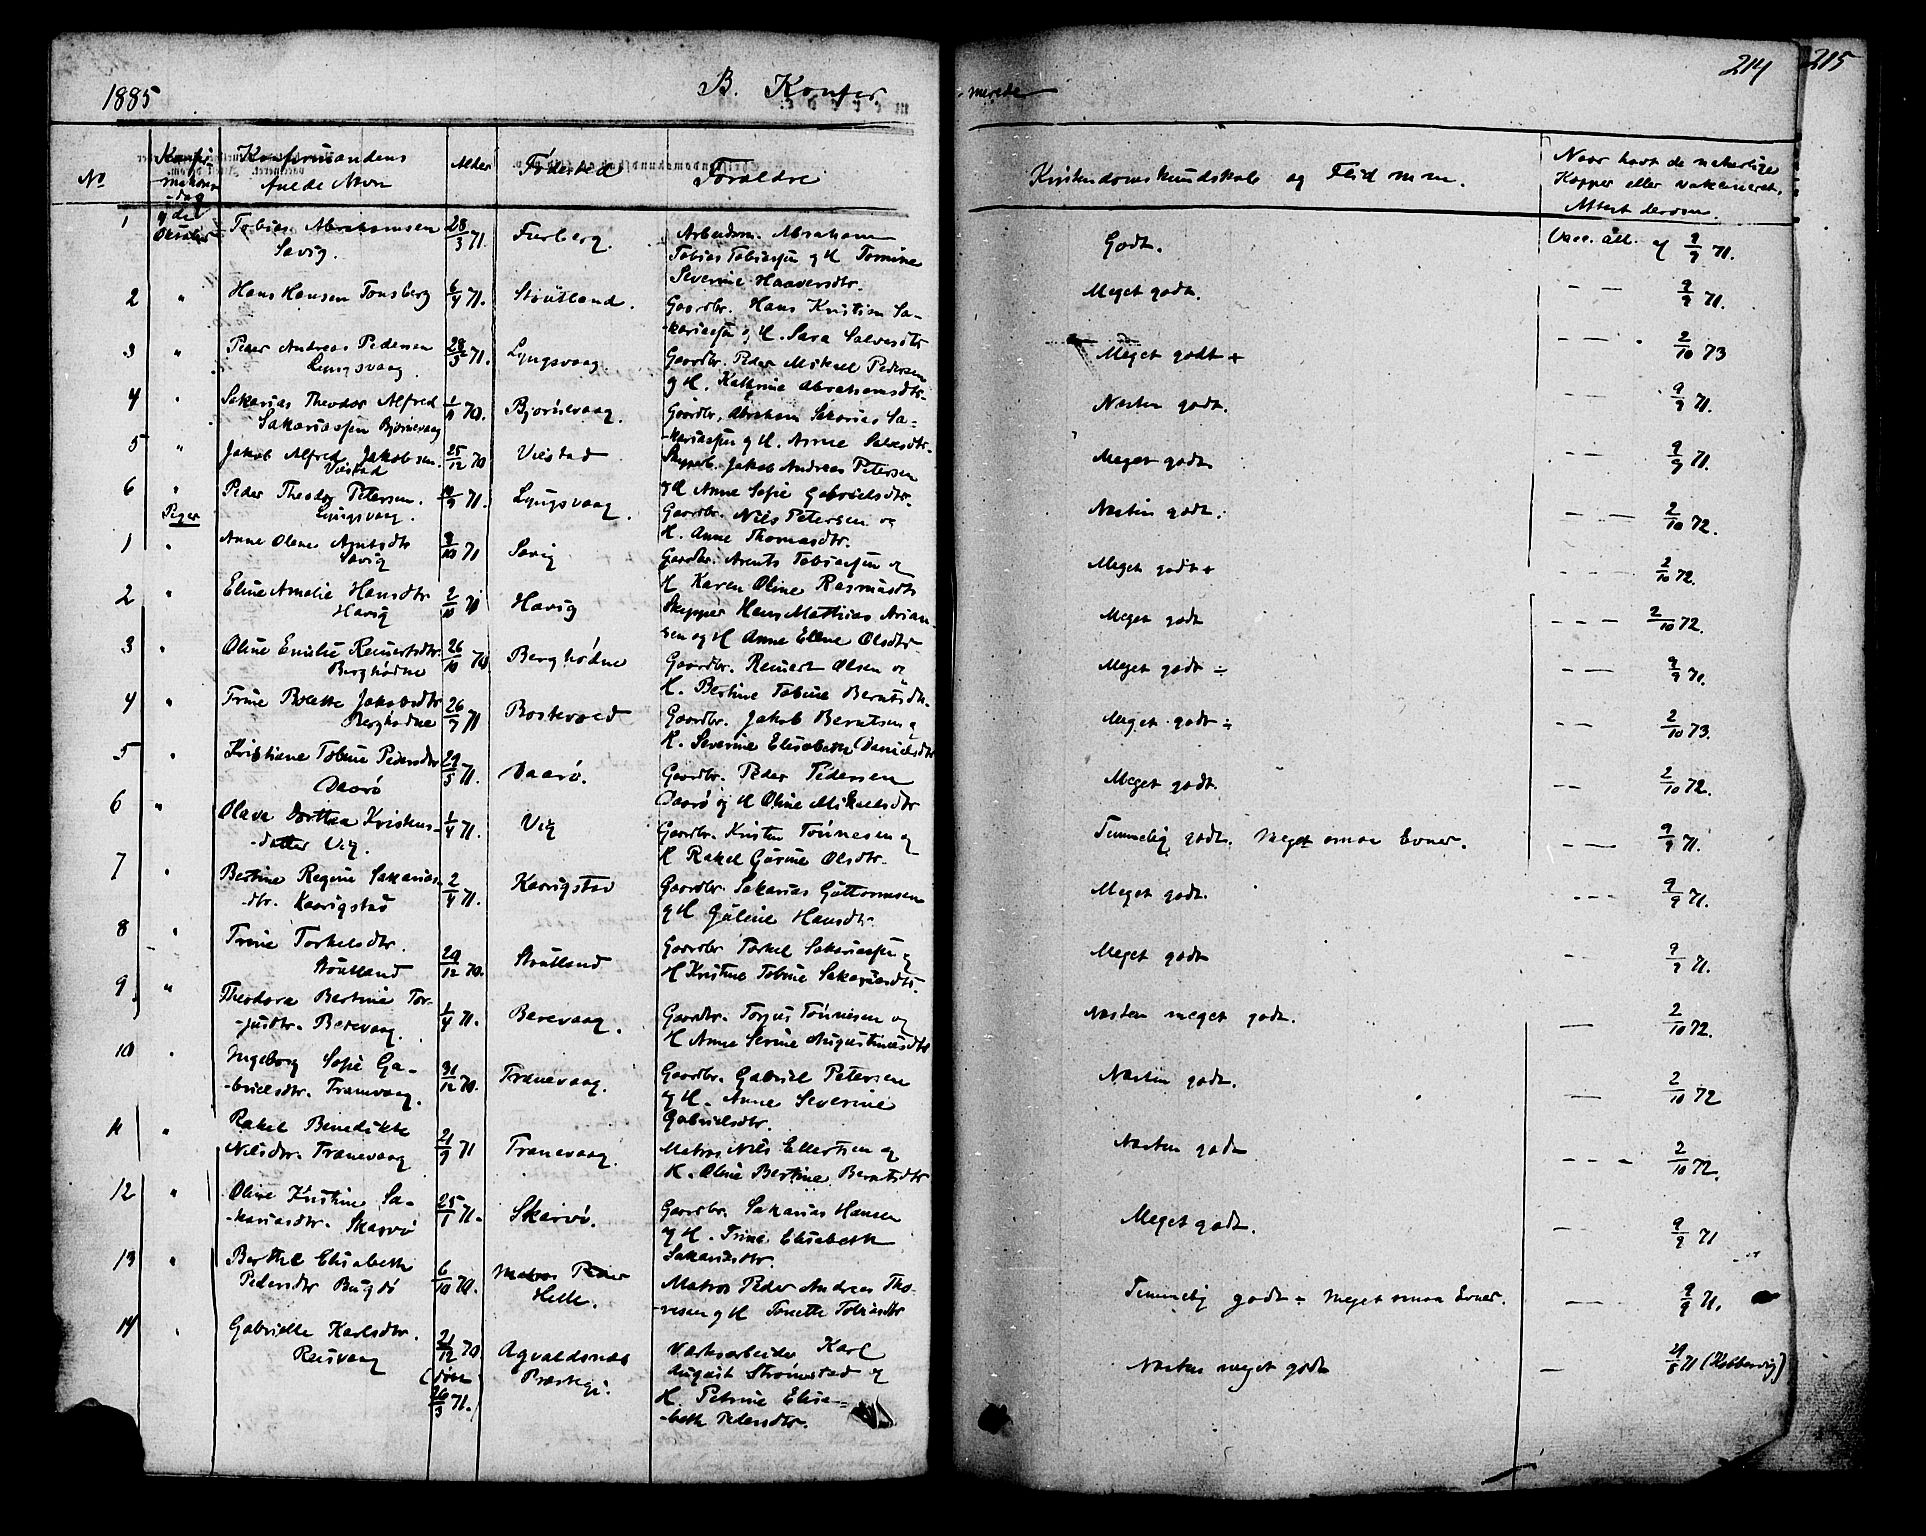 1885
B. Konfir-
-merede
214
215
No
Konfir-
mations-
-dag
Konfirmandens
fulde Navn
Alder
Fødested
Forældre
Kristendomskundskab og Flid m m.
Naar havt de naturlige
Kopper eller vakcineret.
Attest derom.
1
4de
Oktober
Tobias Abrahamsen
Sævig.
28/3 71.
Furberg.
Arbeidsm. Abraham
Tobias Tobiassen og H. Tomine
Severine Haaversdtr.
Godt.
Vacc. att. af 9/9 71.
2 "
Hans Hansen Tonsberg
6/4 71.
Støutland.
Gaardbr. Hans Kristian Sa-
-kariassen og H. Sara Salvesdtr
Meget godt.
9/9 71.
3 "
Peder Andreas Pedersen
Lyngsvaag.
28/3 71.
Lyngsvaag
Gaardbr. Peder Mikael Pedersen
og H. Kathrine Abrahamsdtr.
Meget godt +
2/10 73
4 "
Sakarias Theodor Alfred
Sakariassen Bjørnevaag
70.
Bjørnevaag.
Gaardbr. Abraham Sakarias Sa-
-kariassen og H. Anne Salvesdtr.
Næsten godt.
9/9 71.
5 "
Jakob Alfred Jakobsen.
Viestad
25/12 70
Viestad
Skipper. Jakob Andreas Petersen
og H Anne Sofie Gabrielsdtr.
Meget godt.
9/9 71.
6 "
Peder Theodor Petersen.
Lyngsvaag.
71.
Lyngsvaag.
Gaardbr. Nils Petersen og
H. Anne Thomasdtr.
Næsten godt.
2/10 72.
Piger
1 "
Anne Oline Arntsdtr
Sævig
9/10 71
Sævig
Gaardbr. Arents Tobiassen og
H Karen Oline Rasmusdtr
Meget godt +
2/10 72.
2 "
Eline Amalie Hansdtr
Havig
2/10 71
Havig
Skipper Hans Mathias Arian-
sen og H Anne Elene Olsdtr
Meget godt
2/10 72.
3 "
Oline Emilie Reinertsdtr.
Berghødne
26/10 70
Berghødne
Gaardbr. Reinert Olsen og
H. Bertine Tobine Berntsdtr.
Meget godt ÷
9/9 71.
4 "
Trine Bolette Jakobsdtr
Berghødne
26/9 71
Rostevold
Gaardbr. Jakob Berntsen og
H. Severine Elisabeth Danielsdtr
Meget godt ÷
2/10 73.
5 "
Kristiane Tobine Pedersdtr
Daarø
29/5 71.
Daarø.
Gaardbr. Peder Pedersen
Daarø og H Oline Mikaelsdtr
Meget godt.
2/10 72.
6 "
Olava Dorthea Kristens-
-datter Vig.
1/4 71.
Vig
Gaardbr. Kristen Tønnesen og
H Rakel Gurine Olsdtr.
Temmelig godt. Meget smaa Evner.
9/9 71.
7 "
Bertine Regine Sakarias-
-dtr. Kaarigstad
2/4 71.
Kaarigstad
Gaardbr. Sakarias Guttormsen
og H Guline Hansdtr.
Meget godt.
9/9 71.
8 "
Trine Torkelsdtr.
Støutland
29/12 70.
Støutland
Gaardbr Torkel Sakariassen og
H Kristine Tobine Sakariasdtr.
Meget godt
9/9 71.
9 "
Theodora Bertine Tor-
-jusdtr. Berevaag.
1/4 71.
Berevaag.
Gaardbr. Torjus Tønnesen og
H Anne Serine Augustinusdtr
Næsten meget godt.
2/10 72.
10 "
Ingeborg Sofie Ga-
-brielsdtr. Tranevaag.
31/12 70.
Tranevaag.
Gaardbr. Gabriel Petersen
og H. Anne Severine
Gabrielsdtr.
Næsten godt.
2/10 72
11 "
Rakel Benedikte
Nilsdtr. Tranevaag
21/9 71
Tranevaag.
Matros Nils Ellertsen og
H. Oline Bertine Berntsdtr
Næsten godt
2/10 72.
12 "
Oline Kristine Sa-
-kariasdtr. Skarvø
25/1 71.
Skarvø.
Gaardbr. Sakarias Hansen
og H. Trine Elisabeth
Sakariasdtr.
Meget godt.
9/9 71
13 "
Berthe Elisabeth
Pedersdtr Bugdø
6/10 70.
Matros Peder
Helle.
Matros Peder Andreas Tho-
-resen og H Tonette Tobiasdtr
Temmelig godt ÷ Meget smaa Evner.
9/9 71.
14 "
Gabrielle Karlsdtr.
Reusvaag
21/12 70
26/3 71.
Agvaldsnæs
Præstegj.
Værksarbeider Karl
August Strømstad og
H. Petrine Elisa-
-beth Pedersdtr.
Næsten meget godt
71 (Kobbervig)